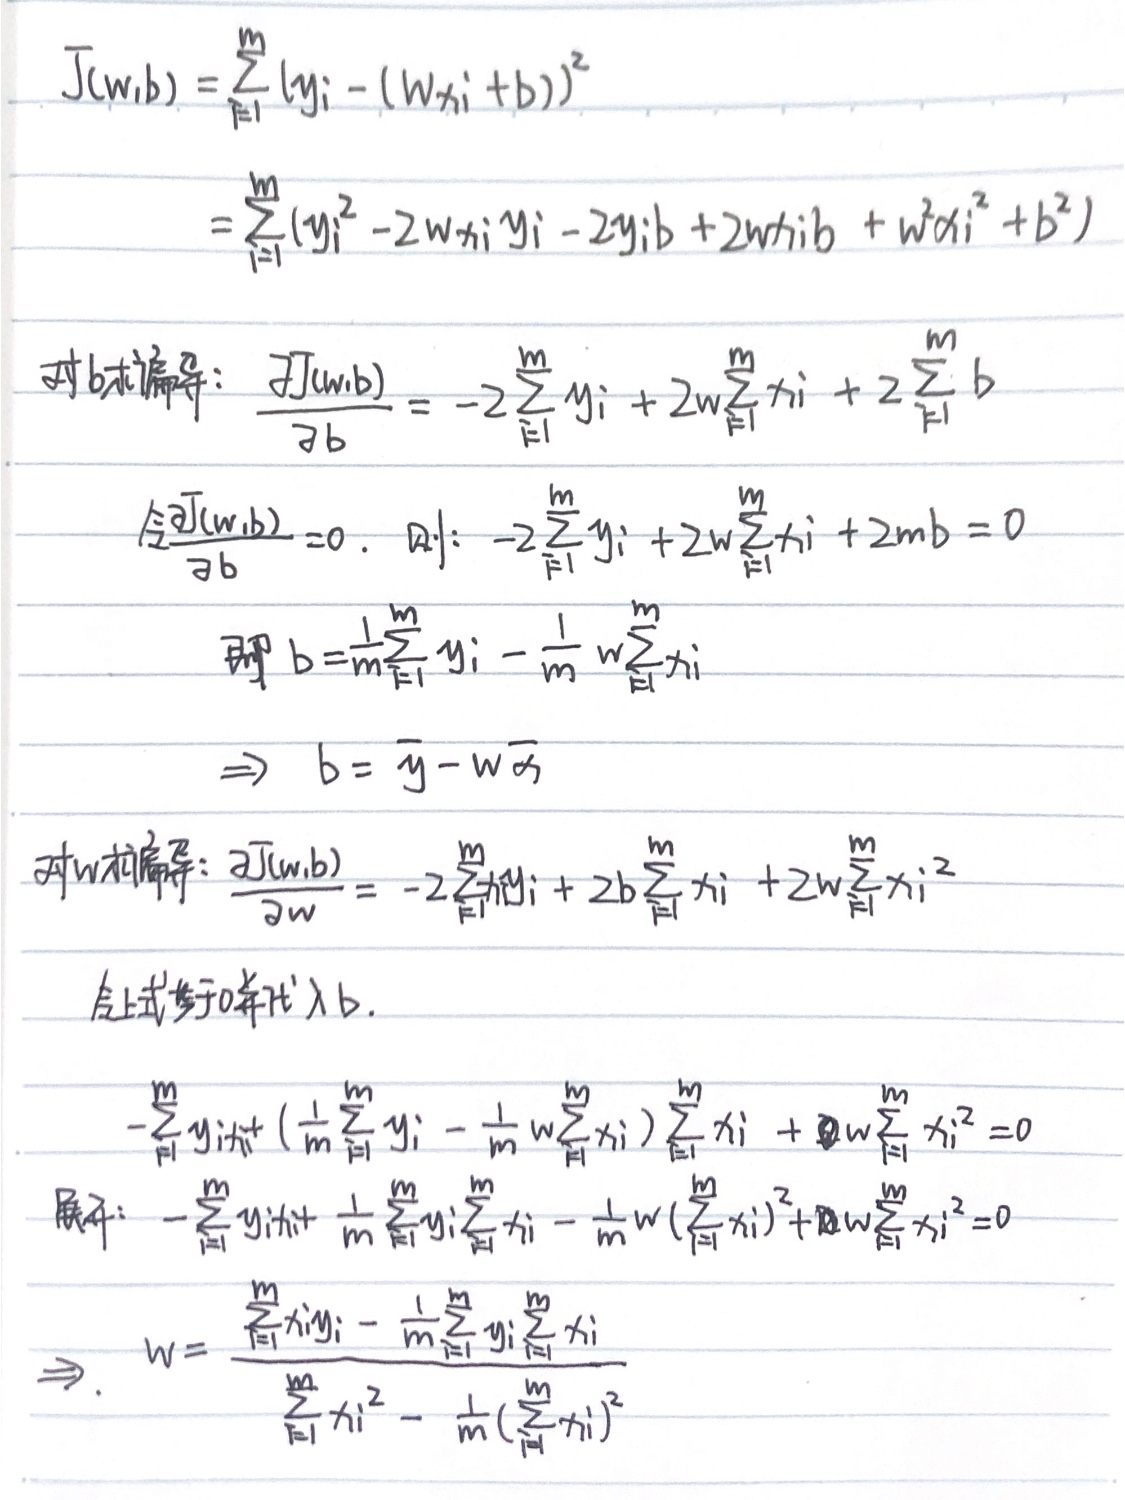 J(w,b) = Σ_{i=1}^{m} (y_i - (wx_i + b))²
= Σ_{i=1}^{m} (y_i² - 2wx_iy_i - 2y_ib + 2wx_ib + w²x_i² + b²)
对b求偏导: ∂J(w,b)/∂b = -2 Σ_{i=1}^{m} y_i + 2w Σ_{i=1}^{m} x_i + 2 Σ_{i=1}^{m} b
令 ∂J(w,b)/∂b = 0. 则: -2 Σ_{i=1}^{m} y_i + 2w Σ_{i=1}^{m} x_i + 2mb = 0
即 b = 1/m Σ_{i=1}^{m} y_i - 1/m w Σ_{i=1}^{m} x_i
⇒ b = ȳ - w x̄
对w求偏导: ∂J(w,b)/∂w = -2 Σ_{i=1}^{m} x_iy_i + 2b Σ_{i=1}^{m} x_i + 2w Σ_{i=1}^{m} x_i²
令上式等于0并代入b.
- Σ_{i=1}^{m} y_ix_i + (1/m Σ_{i=1}^{m} y_i - 1/m w Σ_{i=1}^{m} x_i) Σ_{i=1}^{m} x_i + w Σ_{i=1}^{m} x_i² = 0
展开: - Σ_{i=1}^{m} y_ix_i + 1/m Σ_{i=1}^{m} y_i Σ_{i=1}^{m} x_i - 1/m w (Σ_{i=1}^{m} x_i)² + w Σ_{i=1}^{m} x_i² = 0
⇒. w = (Σ_{i=1}^{m} x_iy_i - 1/m Σ_{i=1}^{m} y_i Σ_{i=1}^{m} x_i) / (Σ_{i=1}^{m} x_i² - 1/m (Σ_{i=1}^{m} x_i)²)